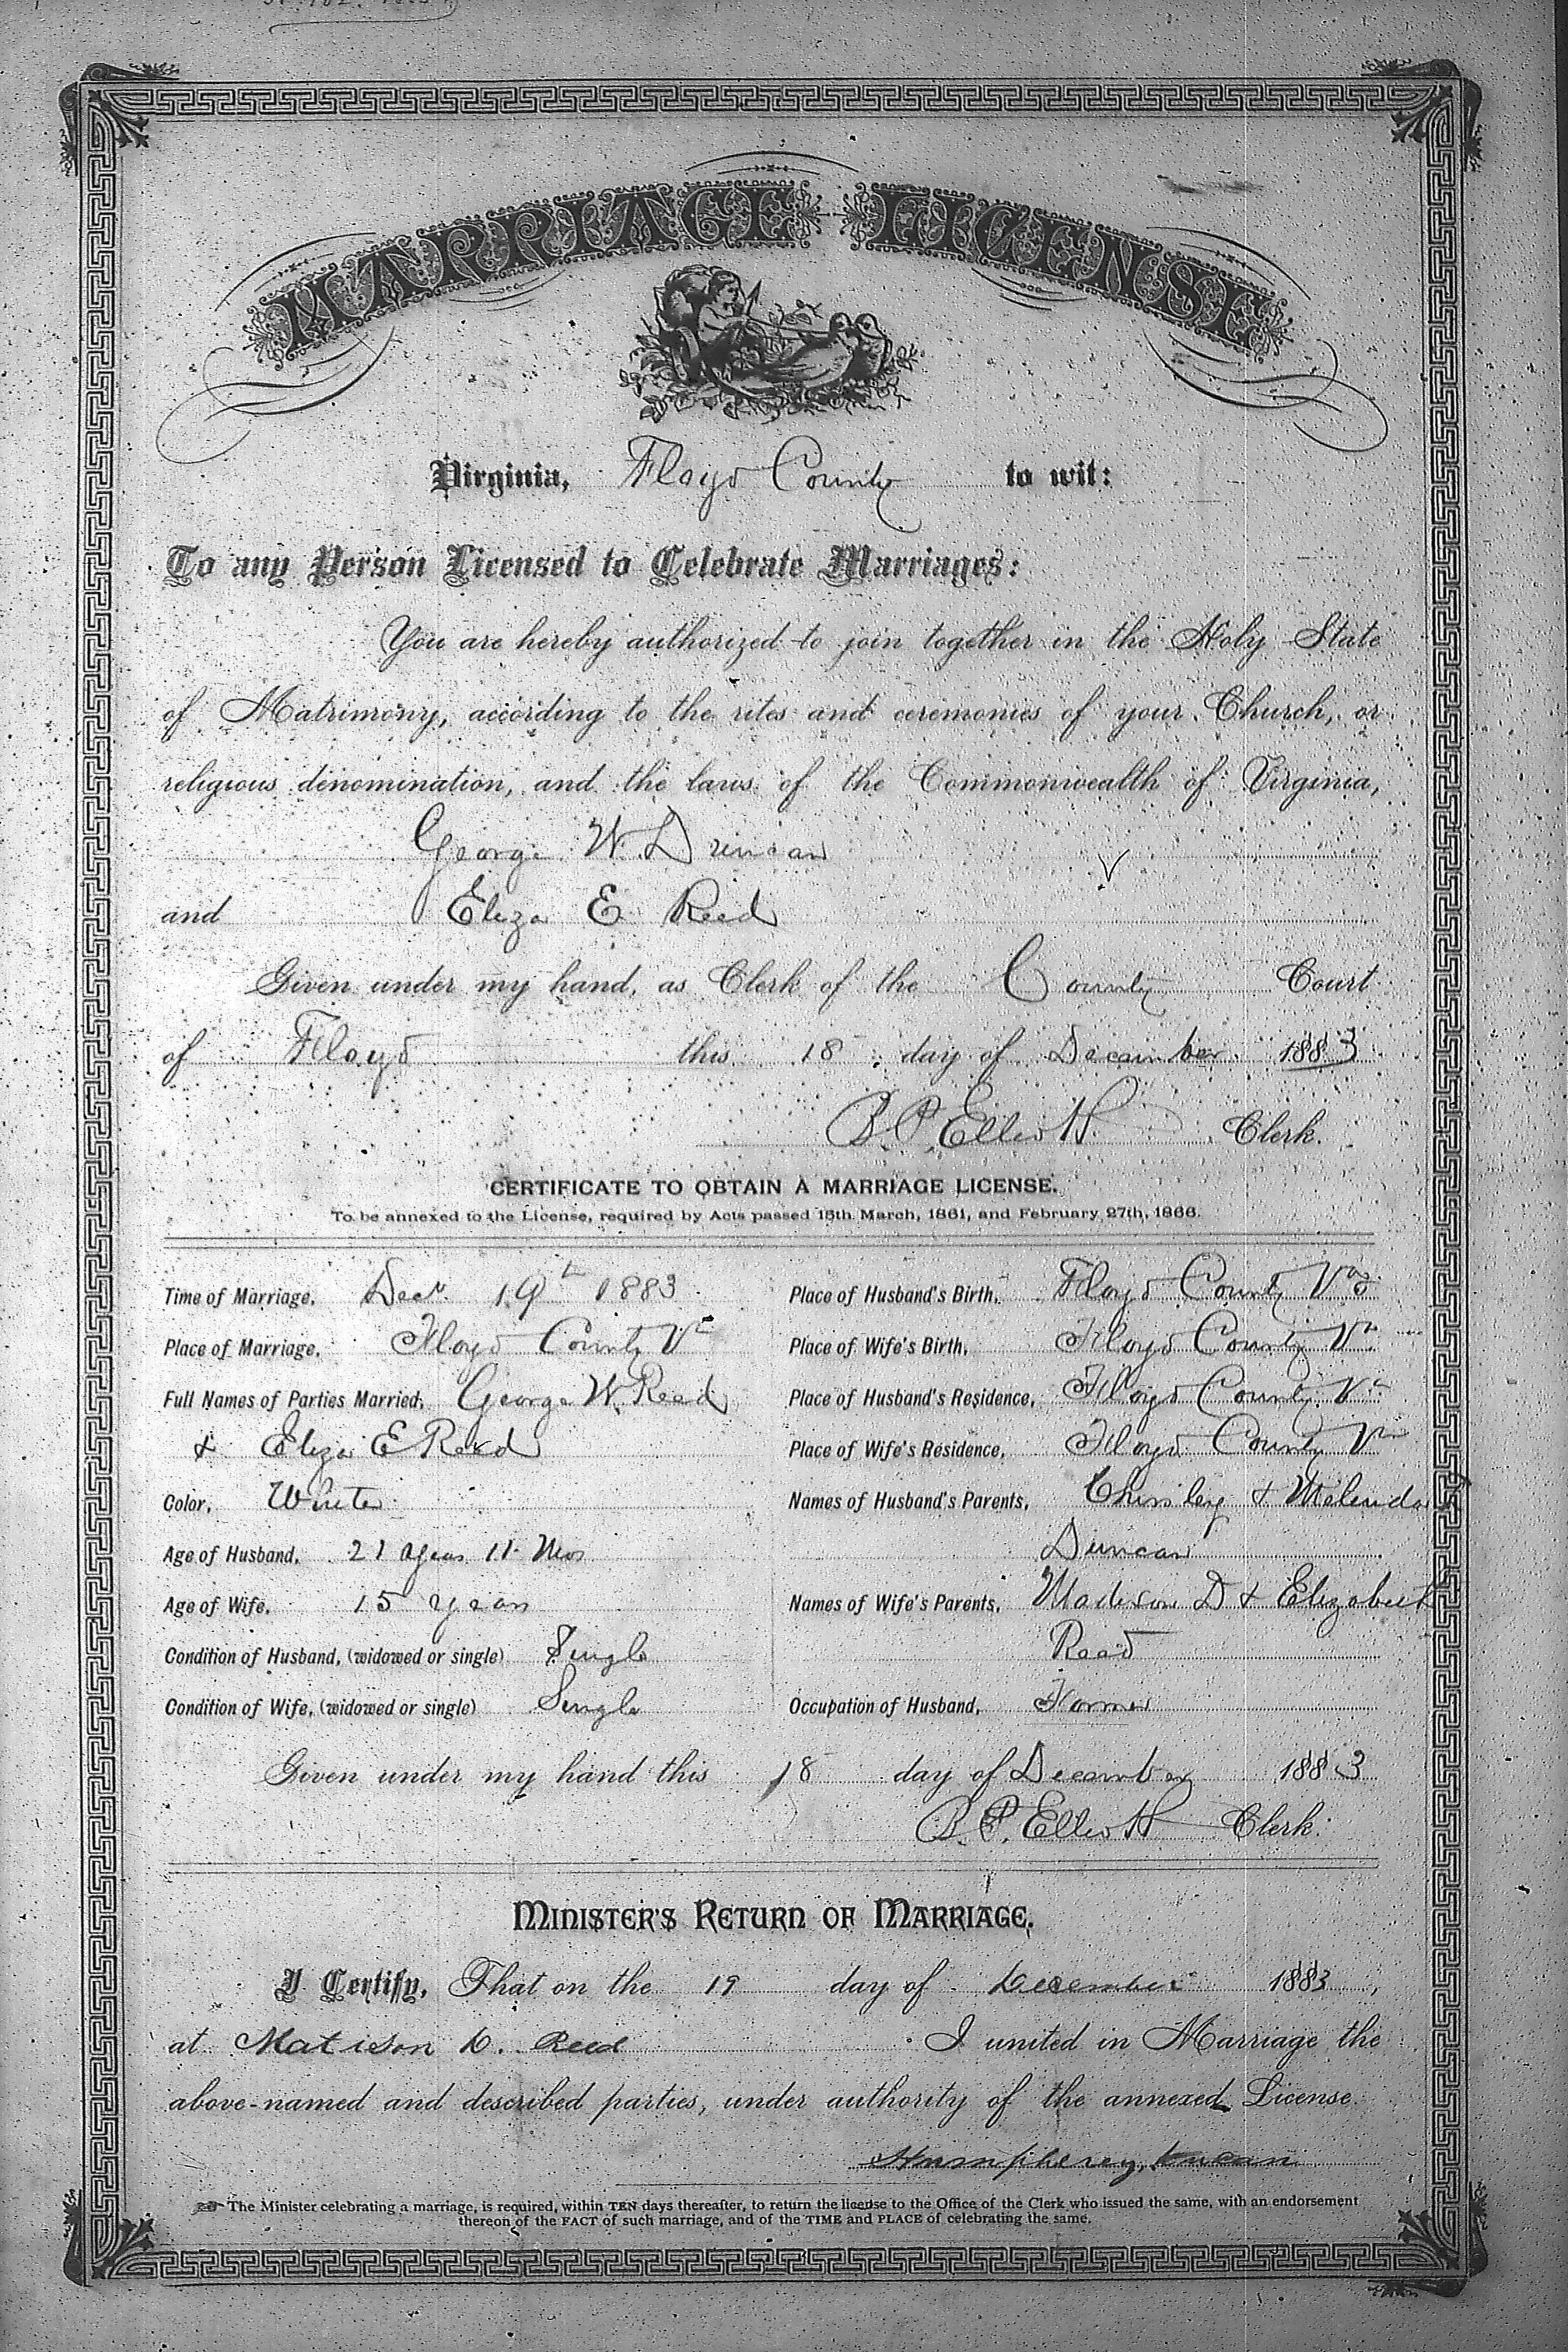 MARRIAGE LICENSE
Virginia, Floyd County to wit:
To any Person Licensed to Celebrate Marriages:
You are hereby authorized to join together in the Holy State
of Matrimony, according to the rites and ceremonies of your Church, or
religious denomination, and the laws of the Commonwealth of Virginia,
George W. Duncan
and Eliza E Reed
Given under my hand, as Clerk of the County Court
of Floyd this 18 day of December 1883
B. P. Elliott Clerk.
CERTIFICATE TO OBTAIN A MARRIAGE LICENSE.
To be annexed to the License, required by Acts passed 15th March, 1861, and February 27th, 1866.
Time of Marriage, Decr. 19th 1883
Place of Marriage, Floyd County Va
Full Names of Parties Married, George W. Reed
& Eliza E Reed
Color, White
Age of Husband, 21 years 11 Mos
Age of Wife, 15 years
Condition of Husband, (widowed or single) Single
Condition of Wife, (widowed or single) Single
Place of Husband's Birth, Floyd County Va
Place of Wife's Birth, Floyd County Va
Place of Husband's Residence, Floyd County Va
Place of Wife's Residence, Floyd County Va
Names of Husband's Parents, & Melinda
Duncan
Names of Wife's Parents, Madison D & Elizabeth
Reed
Occupation of Husband, Farmer
Given under my hand this 18 day of December 1883
B. P. Elliott Clerk.
MINISTER'S RETURN OF MARRIAGE.
I Certify, That on the 19 day of December 1883,
at Matison D. Reed I united in Marriage the
above-named and described parties, under authority of the annexed License.
Humphrey, Ducan
The Minister celebrating a marriage, is required, within TEN days thereafter, to return the license to the Office of the Clerk who issued the same, with an endorsement
thereon of the FACT of such marriage, and of the TIME and PLACE of celebrating the same.